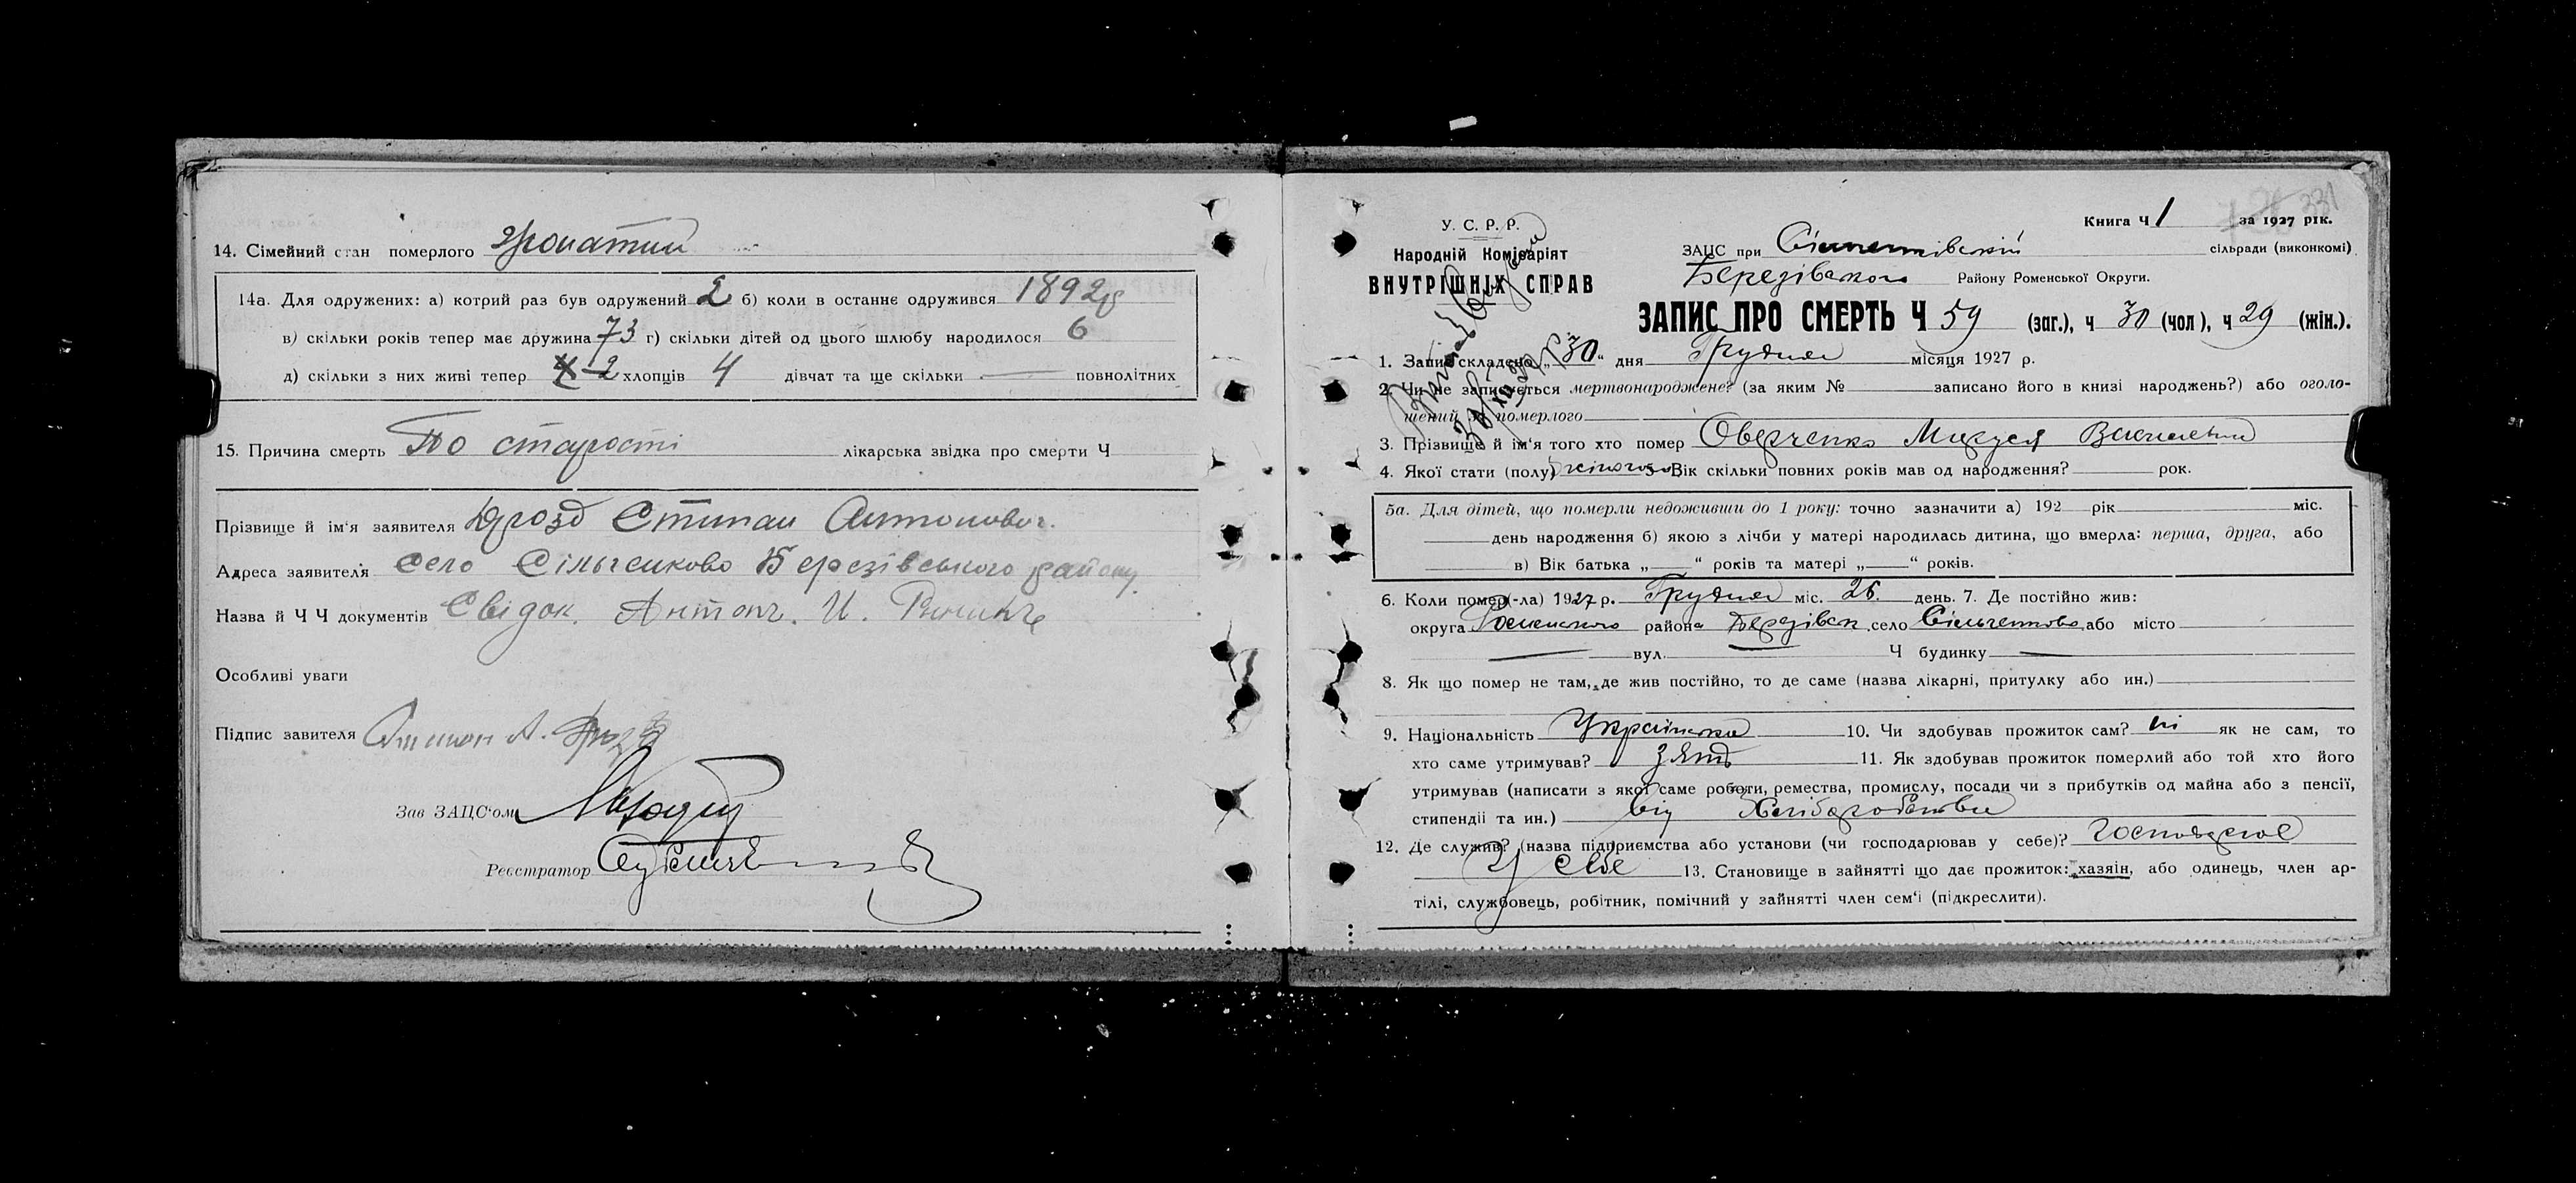 14. Сімейний стан померлого
14а. Для одружених: а) котрий раз був одружений 2 б) коли в останнє одружився 1892 р
в) скільки років тепер має дружина 73 г) скільки дітей од цього шлюбу народилося 6
д) скільки з них живі тепер 2 хлопців 4 дівчат та ще скільки — повнолітних
15. Причина смерть По старості лікарська звідка про смерти Ч
Прізвище й ім'я заявителя Дрозд Степан Антонович.
Адреса заявителя Село Сільченково Березівського району
Назва й Ч Ч документів Свідок.
Особливі уваги
Підпис завителя
Зав ЗАЦС'ом
Реєстратор
331
Книга Ч 1 за 1927 рік.
У. С. Р. Р.
Народній Комісаріят
ВНУТРІШНІХ СПРАВ
ЗАЦС при сільради (виконкомі)
Березівського Району Роменської Округи.
ЗАПИС ПРО СМЕРТЬ Ч 59 (заг.), ч 30 (чол), ч 29 (жін.).
1. Запис складено „30" дня Грудня місяця 1927 р.
2. Чи не записується мертвонароджене? (за яким № записано його в книзі народжень?) або оголо-
шений за померлого
3. Прізвище й ім'я того хто помер
4. Якої стати (полу) жіночого 5. Вік скільки повних років мав од народження? рок.
5а. Для дітей, що померли недоживши до 1 року: точно зазначити а) 192 рік міс.
день народження б) якою з лічби у матері народилась дитина, що вмерла: перша, друга, або
в) Вік батька „ " років та матері „ " років.
6. Коли помер(-ла) 1927 р. Грудня міс. 26. день. 7. Де постійно жив:
округа Роменського района Березівск село Сільченково, або місто
— вул. — Ч будинку —
8. Як що помер не там, де жив постійно, то де саме (назва лікарні, притулку або ин.)
9. Національність Українська 10. Чи здобував прожиток сам? ні як не сам, то
хто саме утримував? зять 11. Як здобував прожиток померлий або той хто його
утримував (написати з якої саме роботи, ремества, промислу, посади чи з прибутків од майна або з пенсії,
стипендії та ин.) від Хліборобства
12. Де служив? (назва підприємства або установи (чи господарював у себе)?
У себе 13. Становище в зайнятті що дає прожиток: хазяїн, або одинець, член ар-
тілі, службовець, робітник, помічний у зайнятті член сем'ї (підкреслити).